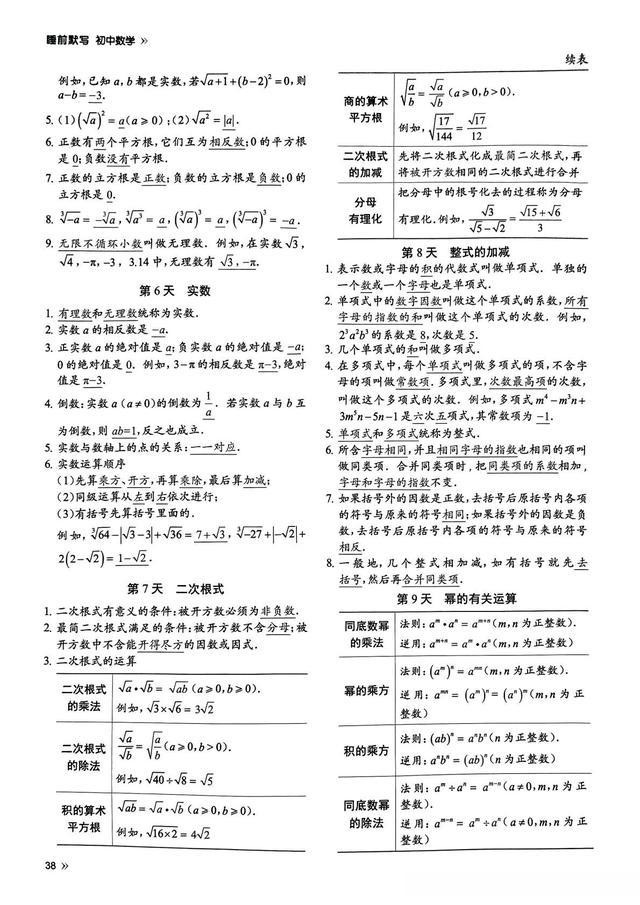 睡前默写 初中数学 »
例如,已知 a,b 都是实数,若√(a+1)+(b-2)²=0,则
a-b=-3.
5. (1)(√a)²=a(a≥0);(2)√a²=|a|.
6. 正数有两个平方根,它们互为相反数;0的平方根
是 0;负数没有平方根.
7. 正数的立方根是正数;负数的立方根是负数;0的
立方根是 0.
8. ∛(-a)=-∛a,∛a³=a,(∛a)³=a,(∛(-a))³=-a.
9. 无限不循环小数叫做无理数. 例如,在实数√3,
√4,-π,-3,3.14中,无理数有 √3,-π.
第6天 实数
1. 有理数和无理数统称为实数.
2. 实数 a 的相反数是 -a.
3. 正实数 a 的绝对值是 a;负实数 a 的绝对值是 -a;
0的绝对值是 0. 例如,3-π的相反数是 π-3,绝对
值是 π-3.
4. 倒数:实数 a(a≠0)的倒数为 1/a. 若实数 a 与 b 互
为倒数,则 ab=1,反之也成立.
5. 实数与数轴上的点的关系:一一对应.
6. 实数运算顺序
(1)先算乘方、开方,再算乘除,最后算加减;
(2)同级运算从左到右依次进行;
(3)有括号先算括号里面的.
例如,∛64-|√3-3|+√36=7+√3,∛(-27)+|-√2|+
2(2-√2)=1-√2.
第7天 二次根式
1. 二次根式有意义的条件:被开方数必须为非负数.
2. 最简二次根式满足的条件:被开方数不含分母;被
开方数中不含能开得尽方的因数或因式.
3. 二次根式的运算
二次根式的乘法
√a·√b=√(ab)(a≥0,b≥0).
例如,√3×√6=3√2
二次根式的除法
√a/√b=√(a/b)(a≥0,b>0).
例如,√40÷√8=√5
积的算术平方根
√(ab)=√a·√b(a≥0,b≥0).
例如,√(16×2)=4√2
38 »
续表
商的算术平方根
√(a/b)=√a/√b(a≥0,b>0).
例如,√(17/144)=√17/12
二次根式的加减
先将二次根式化成最简二次根式,再
将被开方数相同的二次根式进行合并
分母有理化
把分母中的根号化去的过程称为分母
有理化.例如,√3/(√5-√2)=(√15+√6)/3
第8天 整式的加减
1. 表示数或字母的积的代数式叫做单项式. 单独的
一个数或一个字母也是单项式.
2. 单项式中的数字因数叫做这个单项式的系数,所有
字母的指数的和叫做这个单项式的次数. 例如,
2³a²b³的系数是 8,次数是 5.
3. 几个单项式的和叫做多项式.
4. 在多项式中,每个单项式叫做多项式的项,不含字
母的项叫做常数项.多项式里,次数最高项的次数,
叫做这个多项式的次数. 例如,多项式 m⁴-m³n+
3m⁵n-5n-1是六次五项式,其常数项为 -1.
5. 单项式和多项式统称为整式.
6. 所含字母相同,并且相同字母的指数也相同的项叫
做同类项. 合并同类项时,把同类项的系数相加,
字母和字母的指数不变.
7. 如果括号外的因数是正数,去括号后原括号内各项
的符号与原来的符号相同;如果括号外的因数是负
数,去括号后原括号内各项的符号与原来的符号
相反.
8. 一般地,几个整式相加减,如有括号就先去
括号,然后再合并同类项.
第9天 幂的有关运算
同底数幂的乘法
法则:aᵐ·aⁿ=aᵐ⁺ⁿ(m,n为正整数).
逆用:aᵐ⁺ⁿ=aᵐ·aⁿ(m,n为正整数)
幂的乘方
法则:(aᵐ)ⁿ=aᵐⁿ(m,n为正整数).
逆用:aᵐⁿ=(aᵐ)ⁿ=(aⁿ)ᵐ(m,n为正
整数)
积的乘方
法则:(ab)ⁿ=aⁿbⁿ(n为正整数).
逆用:aⁿbⁿ=(ab)ⁿ(n为正整数)
同底数幂的除法
法则:aᵐ÷aⁿ=aᵐ⁻ⁿ(a≠0,m,n为正
整数).
逆用:aᵐ⁻ⁿ=aᵐ÷aⁿ(a≠0,m,n为正
整数)